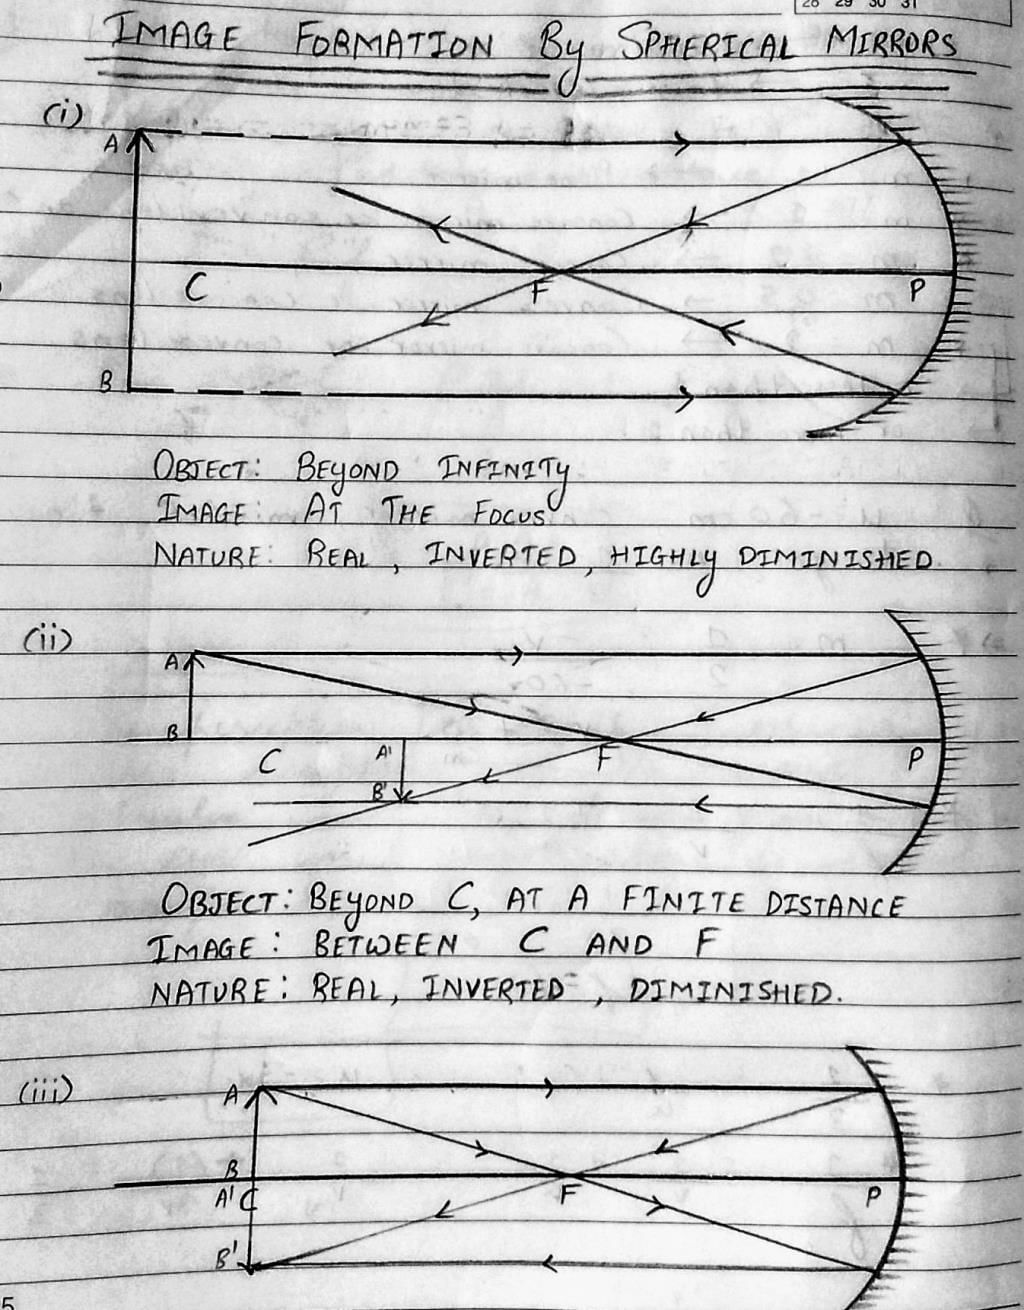 28 29 30 31
IMAGE FORMATION By SPHERICAL MIRRORS
(i)
A
C F P
B
OBJECT: BEyOND INFINITy.
IMAGE: AT THE FOCUS
NATURE: REAL, INVERTED, HIGHLy DIMINISHED.
(ii)
A
B
C A' F P
B'
OBJECT: BEyOND C, AT A FINITE DISTANCE
IMAGE: BETWEEN C AND F
NATURE: REAL, INVERTED, DIMINISHED.
(iii)
A
B
A' C F P
B'
5